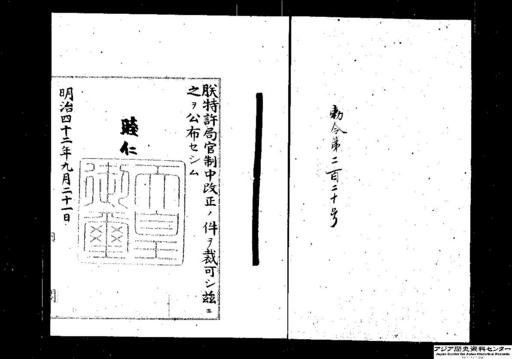 勅令第二百二十号
朕特許局官制中改正ノ件ヲ裁可シ茲ニ
之ヲ公布セシム
睦仁
天皇御璽
明治四十二年九月二十一日
内閣
アジア歴史資料センター
Japan Center for Asian Historical Records